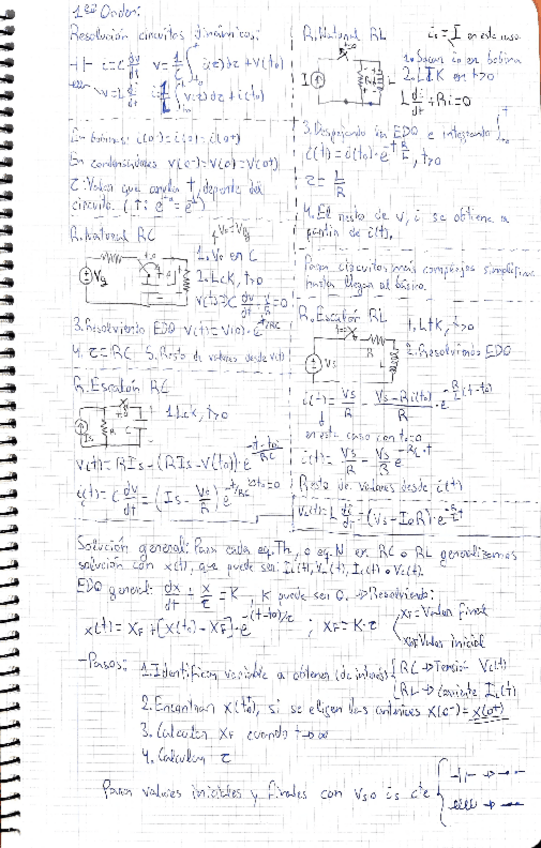 1er Orden:
Resolución circuitos dinámicos:
i=C dv/dt v=1/C ∫ i(z)dz + v(to)
v=L di/dt i=1/L ∫ v(z)dz + i(to)
En bobinas: i(0-)=i(0)=i(0+)
En condensadores v(0-)=v(0)=v(0+)
τ: Valor que anula t, depende del
circuito.
R. Natural RC
Vo=Vg
1. Vo en C
2. LcK, t>0
Vg
3. Resolviendo EDO v(t)=v(0)·e^-t/RC
4. τ=RC 5. Resto de valores desde v(t)
R. Escalón RC
1. LcK, t>0
Is R C
v(t)=RIs-(RIs-v(to))·e^-(t-to)/RC
i(t)=C dv/dt=(Is-Vo/R)e^-t/RC to=0
R. Natural RL
io=I en este caso
1. Sacar io en bobina
2. LTK en t>0
L di/dt + Ri=0
3. Despejando la EDO e integrando
i(t)=i(to)·e^-t R/L, t>0
τ=L/R
4. El resto de v, i se obtiene a
partir de i(t).
Para circuitos más complejos simplificar
hasta llegar al básico.
R. Escalón RL
1. LtK, t>0
2. Resolvemos EDO
Vs R L
i(t)=Vs/R - (Vs-Ri(to))/R · e^-R/L(t-to)
en este caso con to=0
i(t)=Vs/R - Vs/R e^-R/L·t
Resto de valores desde i(t)
VL(t)=L di/dt=(Vs-IoR)·e^-R/L t
Solución general: Para cada eq.Th, o eq.N en RC o RL generalizamos
solución con x(t), que puede ser:
EDO general: dx/dt + x/τ = K, K puede ser 0. → Resolviendo:
x(t)=XF+[X(to)-XF]·e^-(t-to)/τ ; XF=K·τ
XF=Valor final
Valor inicial
-Pasos: 1. Identificar variable a obtener (de interés)
RC → Tensión Vc(t)
RL → Corriente IL(t)
2. Encontrar X(to), si se eligen las anteriores X(0-)=X(0+)
3. Calcular XF cuando t→∞
4. Calcular τ
Para valores iniciales y finales con vs o is cte